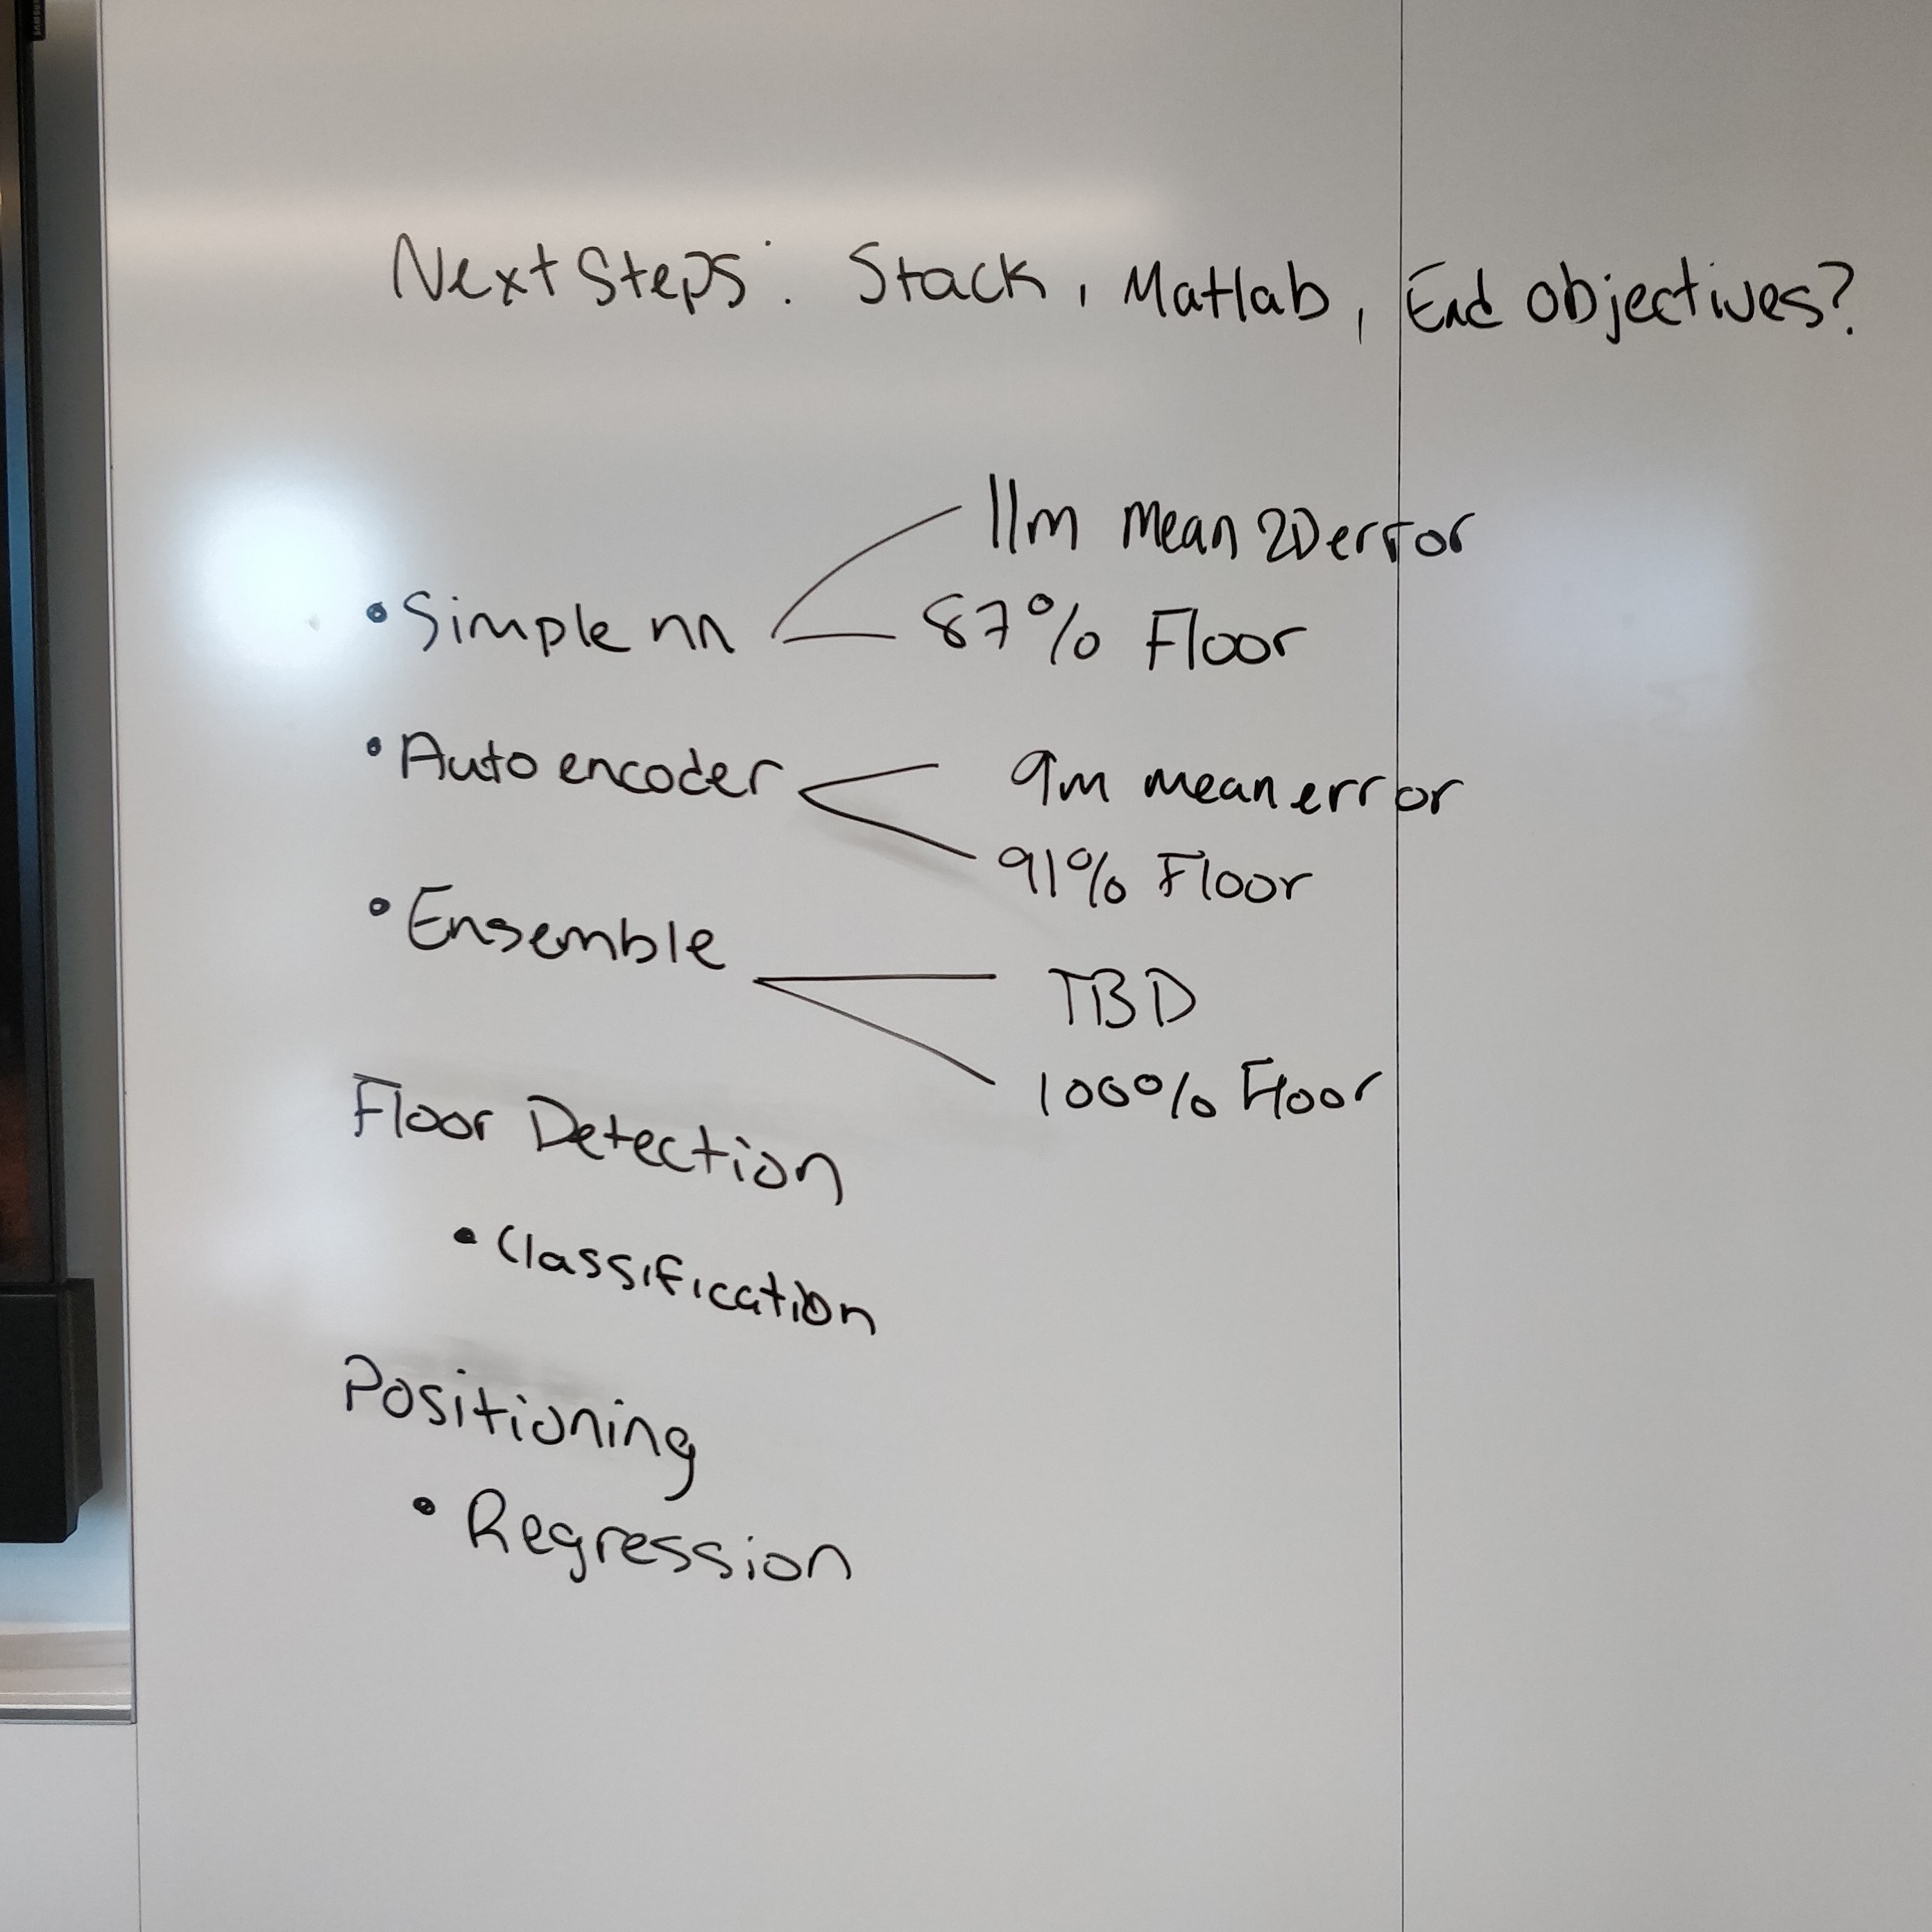 Next Steps: Stack, Matlab, End objectives?
11m mean 2D error
• Simple nn
87% Floor
• Auto encoder
9m mean error
91% Floor
• Ensemble
TBD
100% Floor
Floor Detection
• Classification
Positioning
• Regression